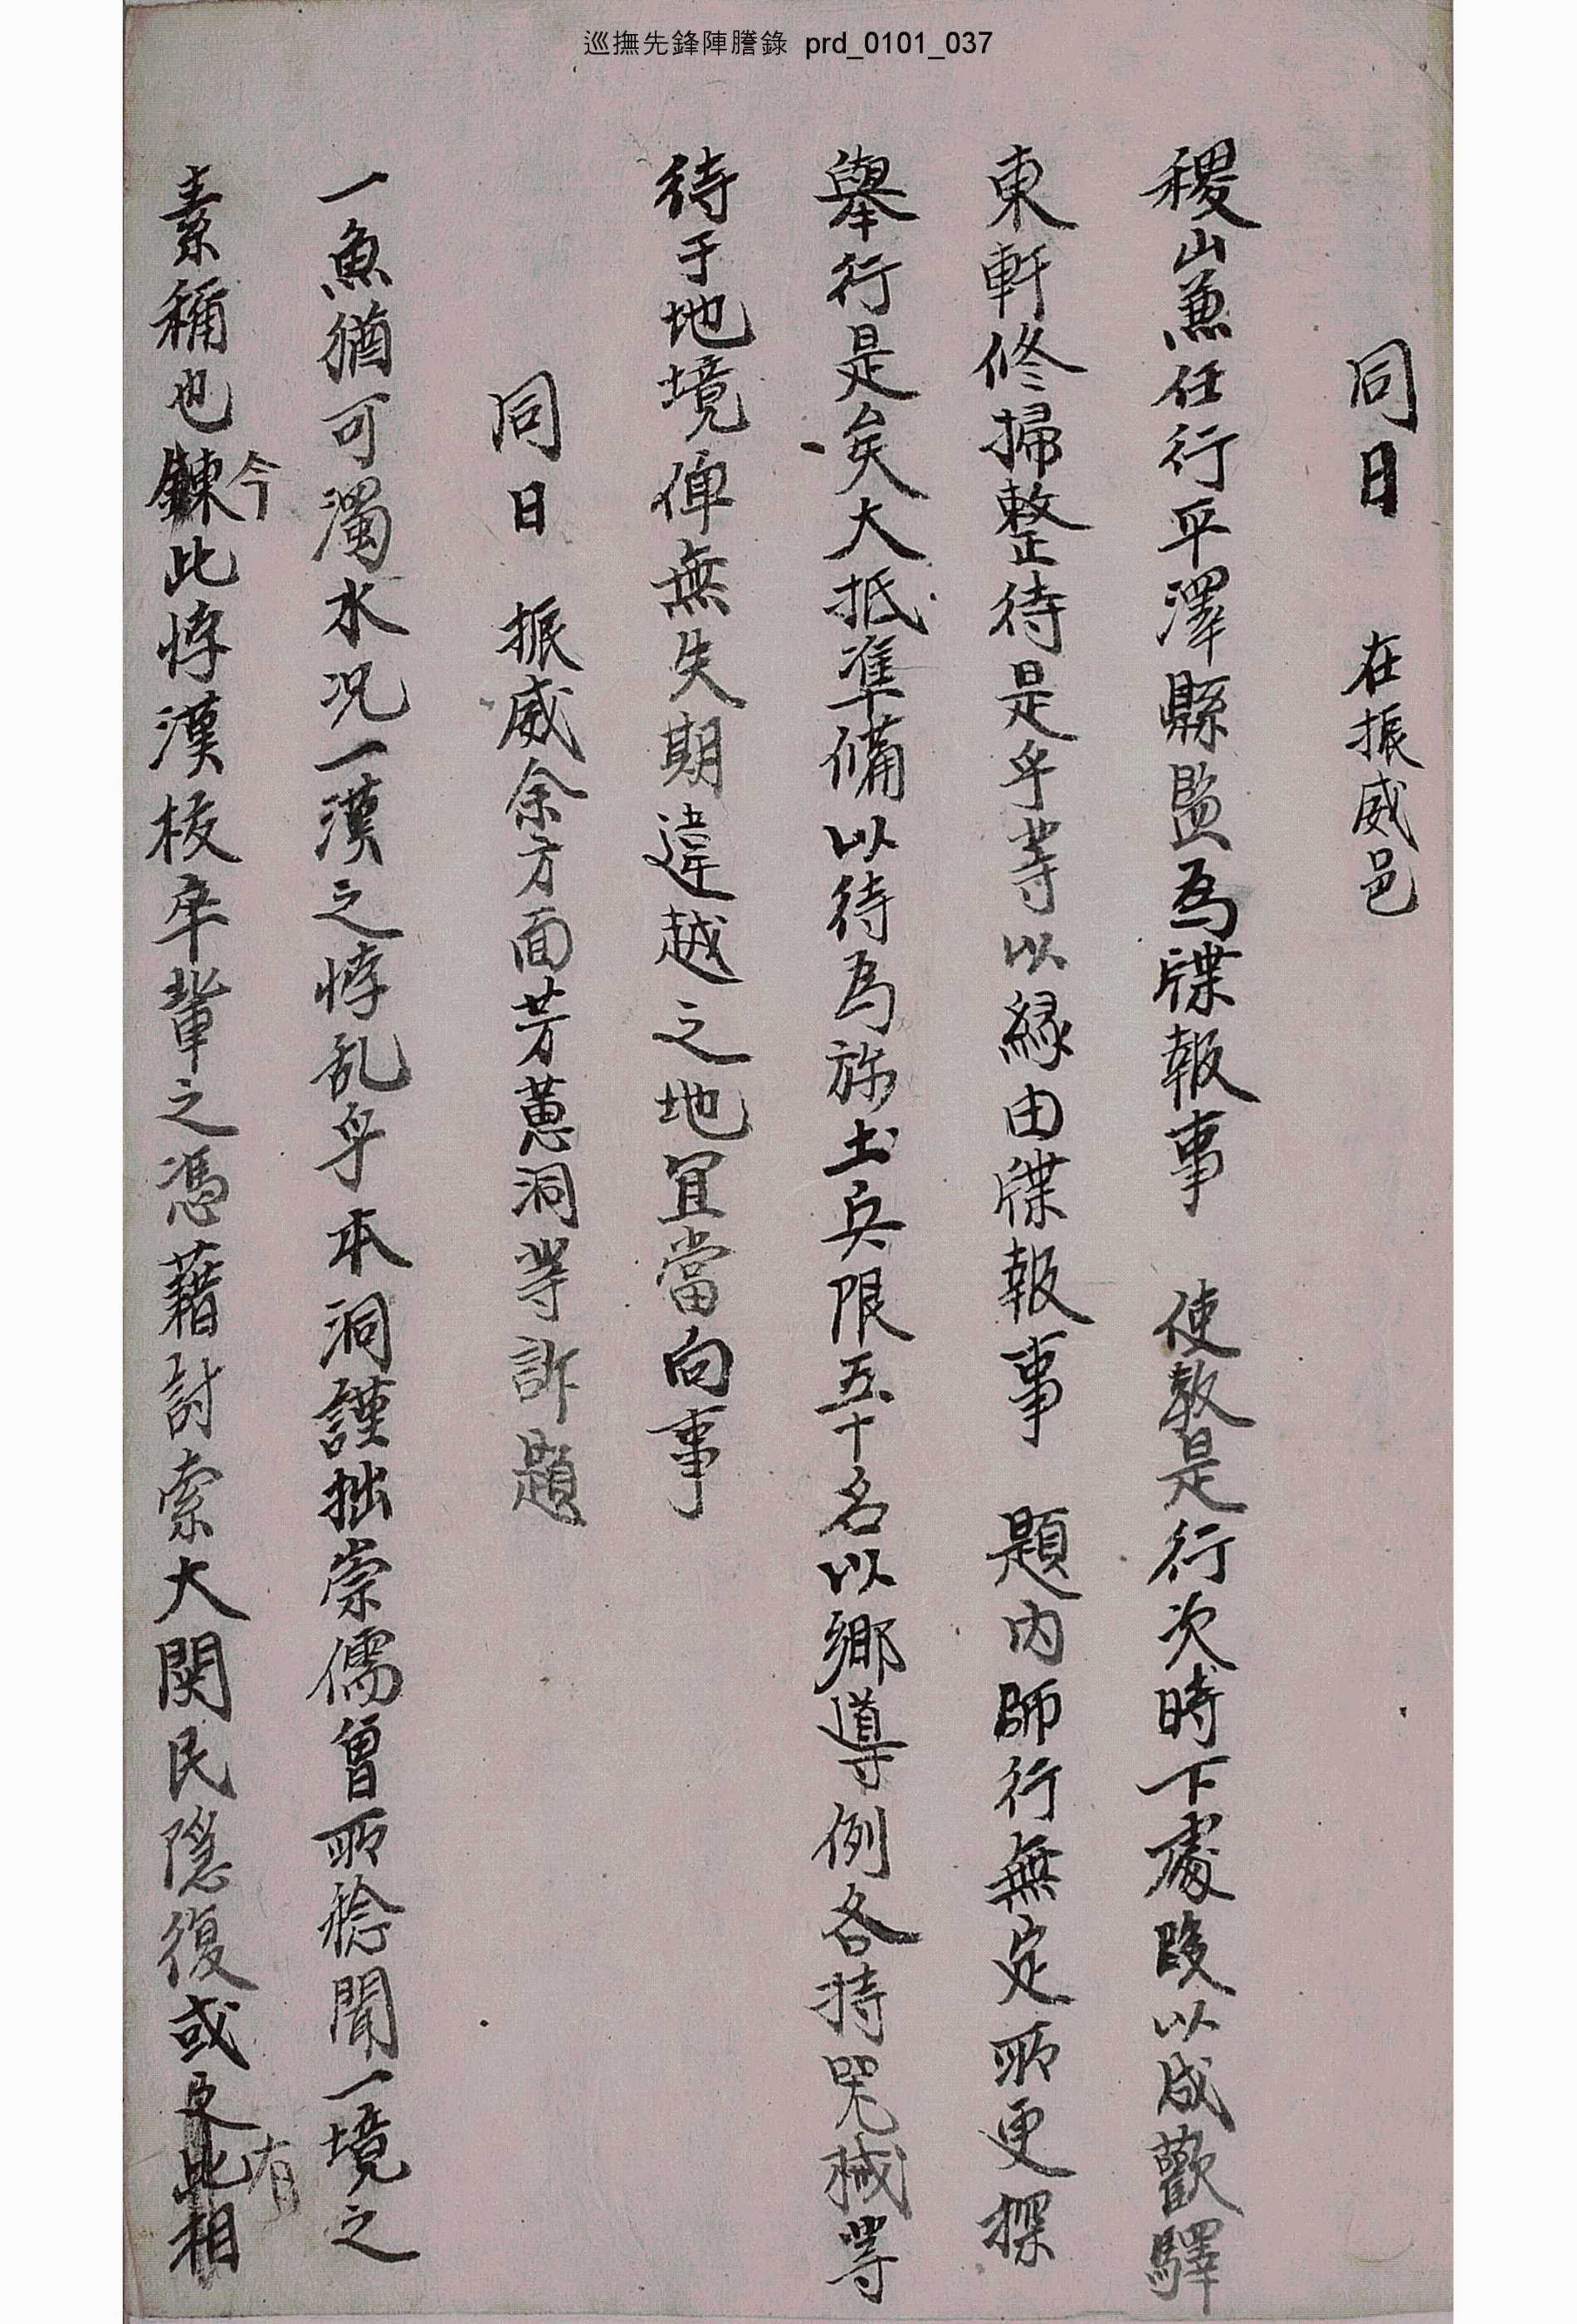 巡撫先鋒陣謄錄 prd_0101_037
同日 在振威邑
稷山兼任行平澤縣監爲牒報事 使教是行次時下處段以成歡驛
東軒修掃整待是乎等以緣由牒報事 題內師行無定所更探
舉行是矣大抵準備以待爲旀土兵限五十名以鄉導例各持器械等
待于地境俾無失期違越之地宜當向事
同日 振威余方面芳蕙洞等訴題
一魚猶可濁水况一漢之悖乱乎本洞謹拙崇儒曾所稔聞一境之
素稱也今此悖漢校卒軰之憑藉討索大関民隱復或有